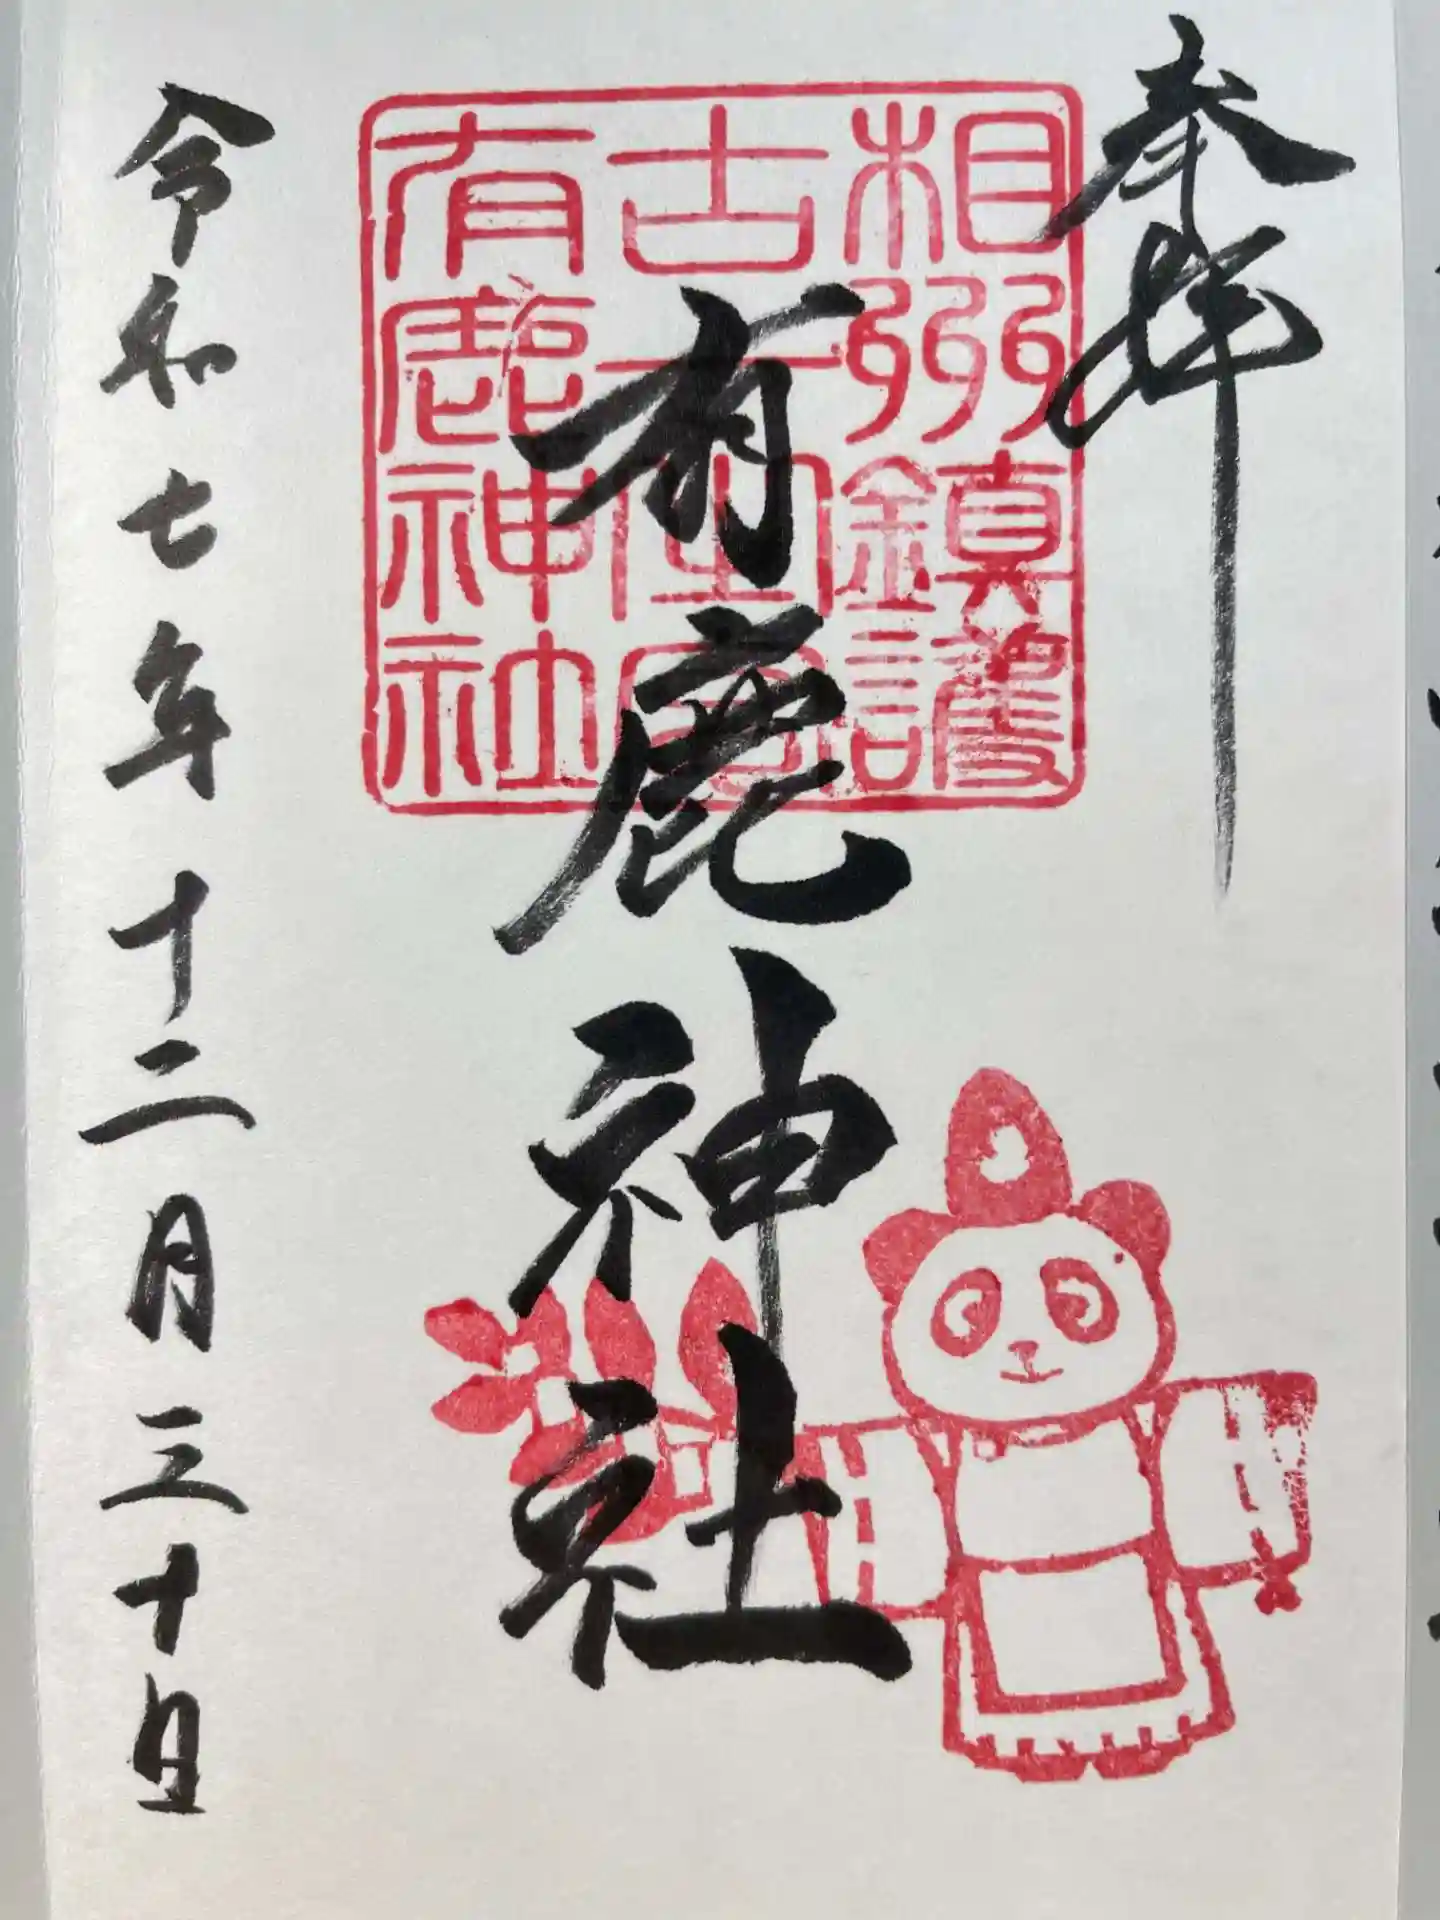 奉拝
相州鎮護
古
有鹿神社
有鹿神社
令和七年十二月三十日